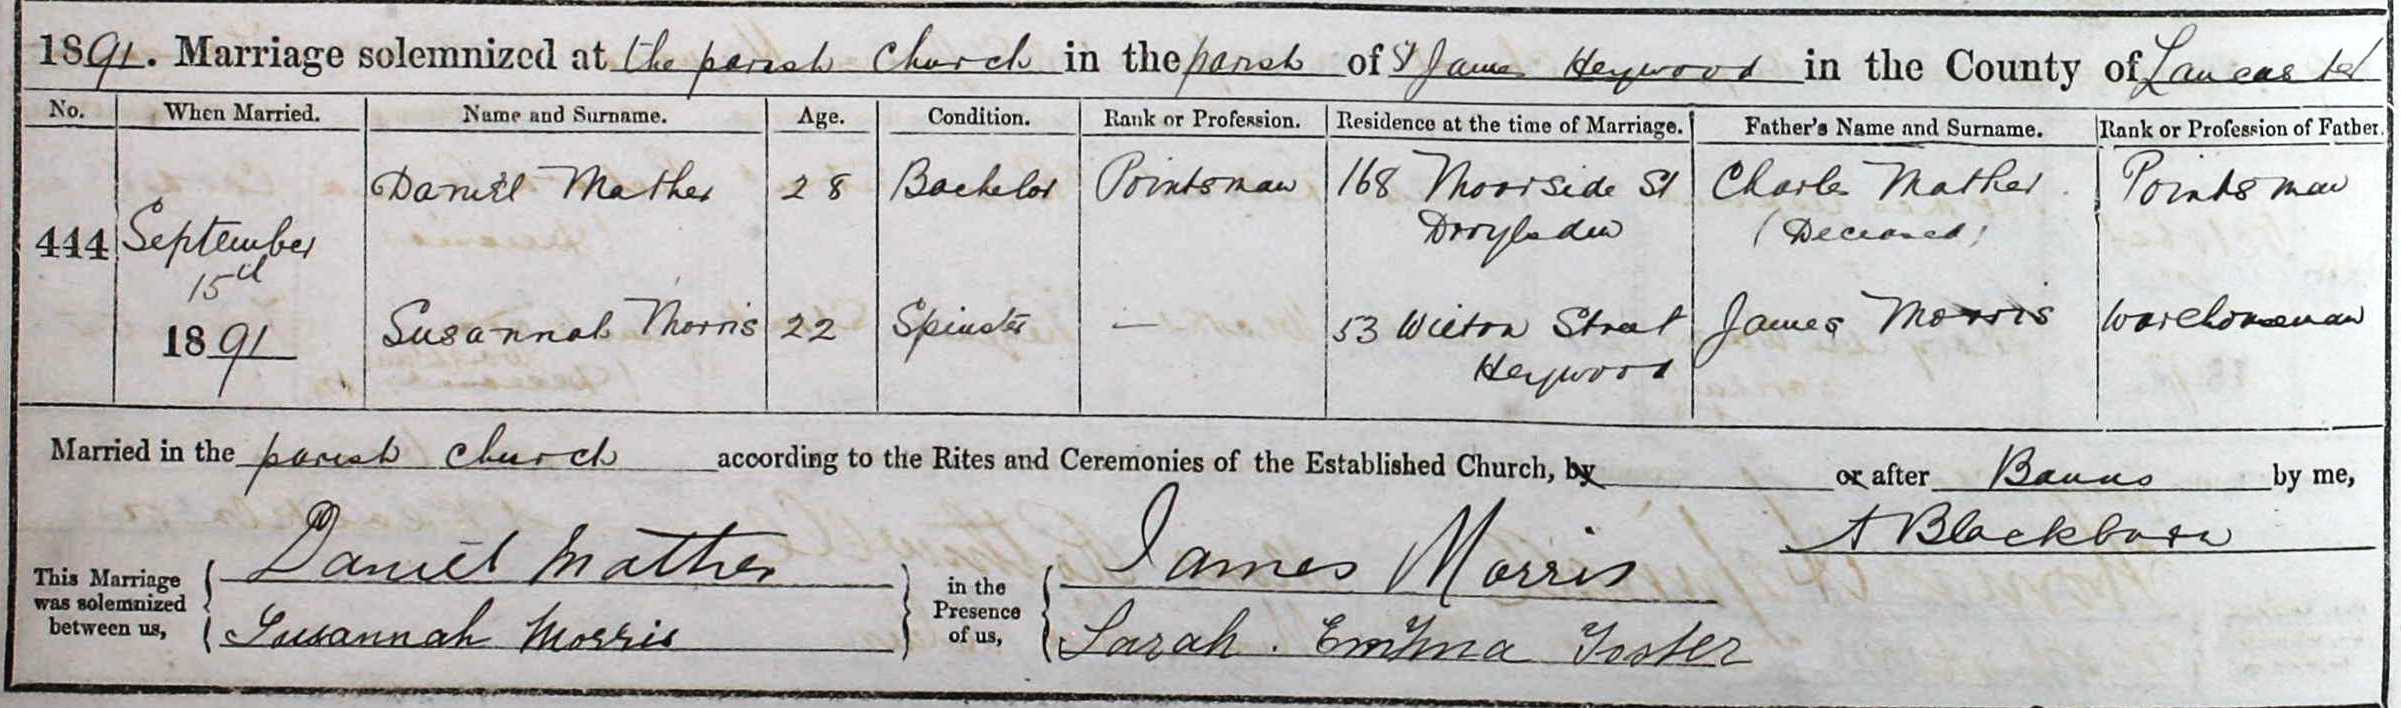 1891. Marriage solemnized at the parish Church in the parish of St James Heywood in the County of Lancaster
No. When Married. Name and Surname. Age. Condition. Rank or Profession. Residence at the time of Marriage. Father's Name and Surname. Rank or Profession of Father.
Daniel Mather 28 Bachelor Pointsman 168 Moorside St Charles Mather Pointsman
444 September Droylsden (Deceased)
15th
1891 Susannah Morris 22 Spinster — 53 Wilton Street James Morris Warehouseman
Heywood
Married in the parish church according to the Rites and Ceremonies of the Established Church, by or after Banns by me,
A Blackburn
This Marriage was solemnized between us, Daniel Mather in the Presence of us, James Morris
Susannah Morris Sarah. Emma Foster